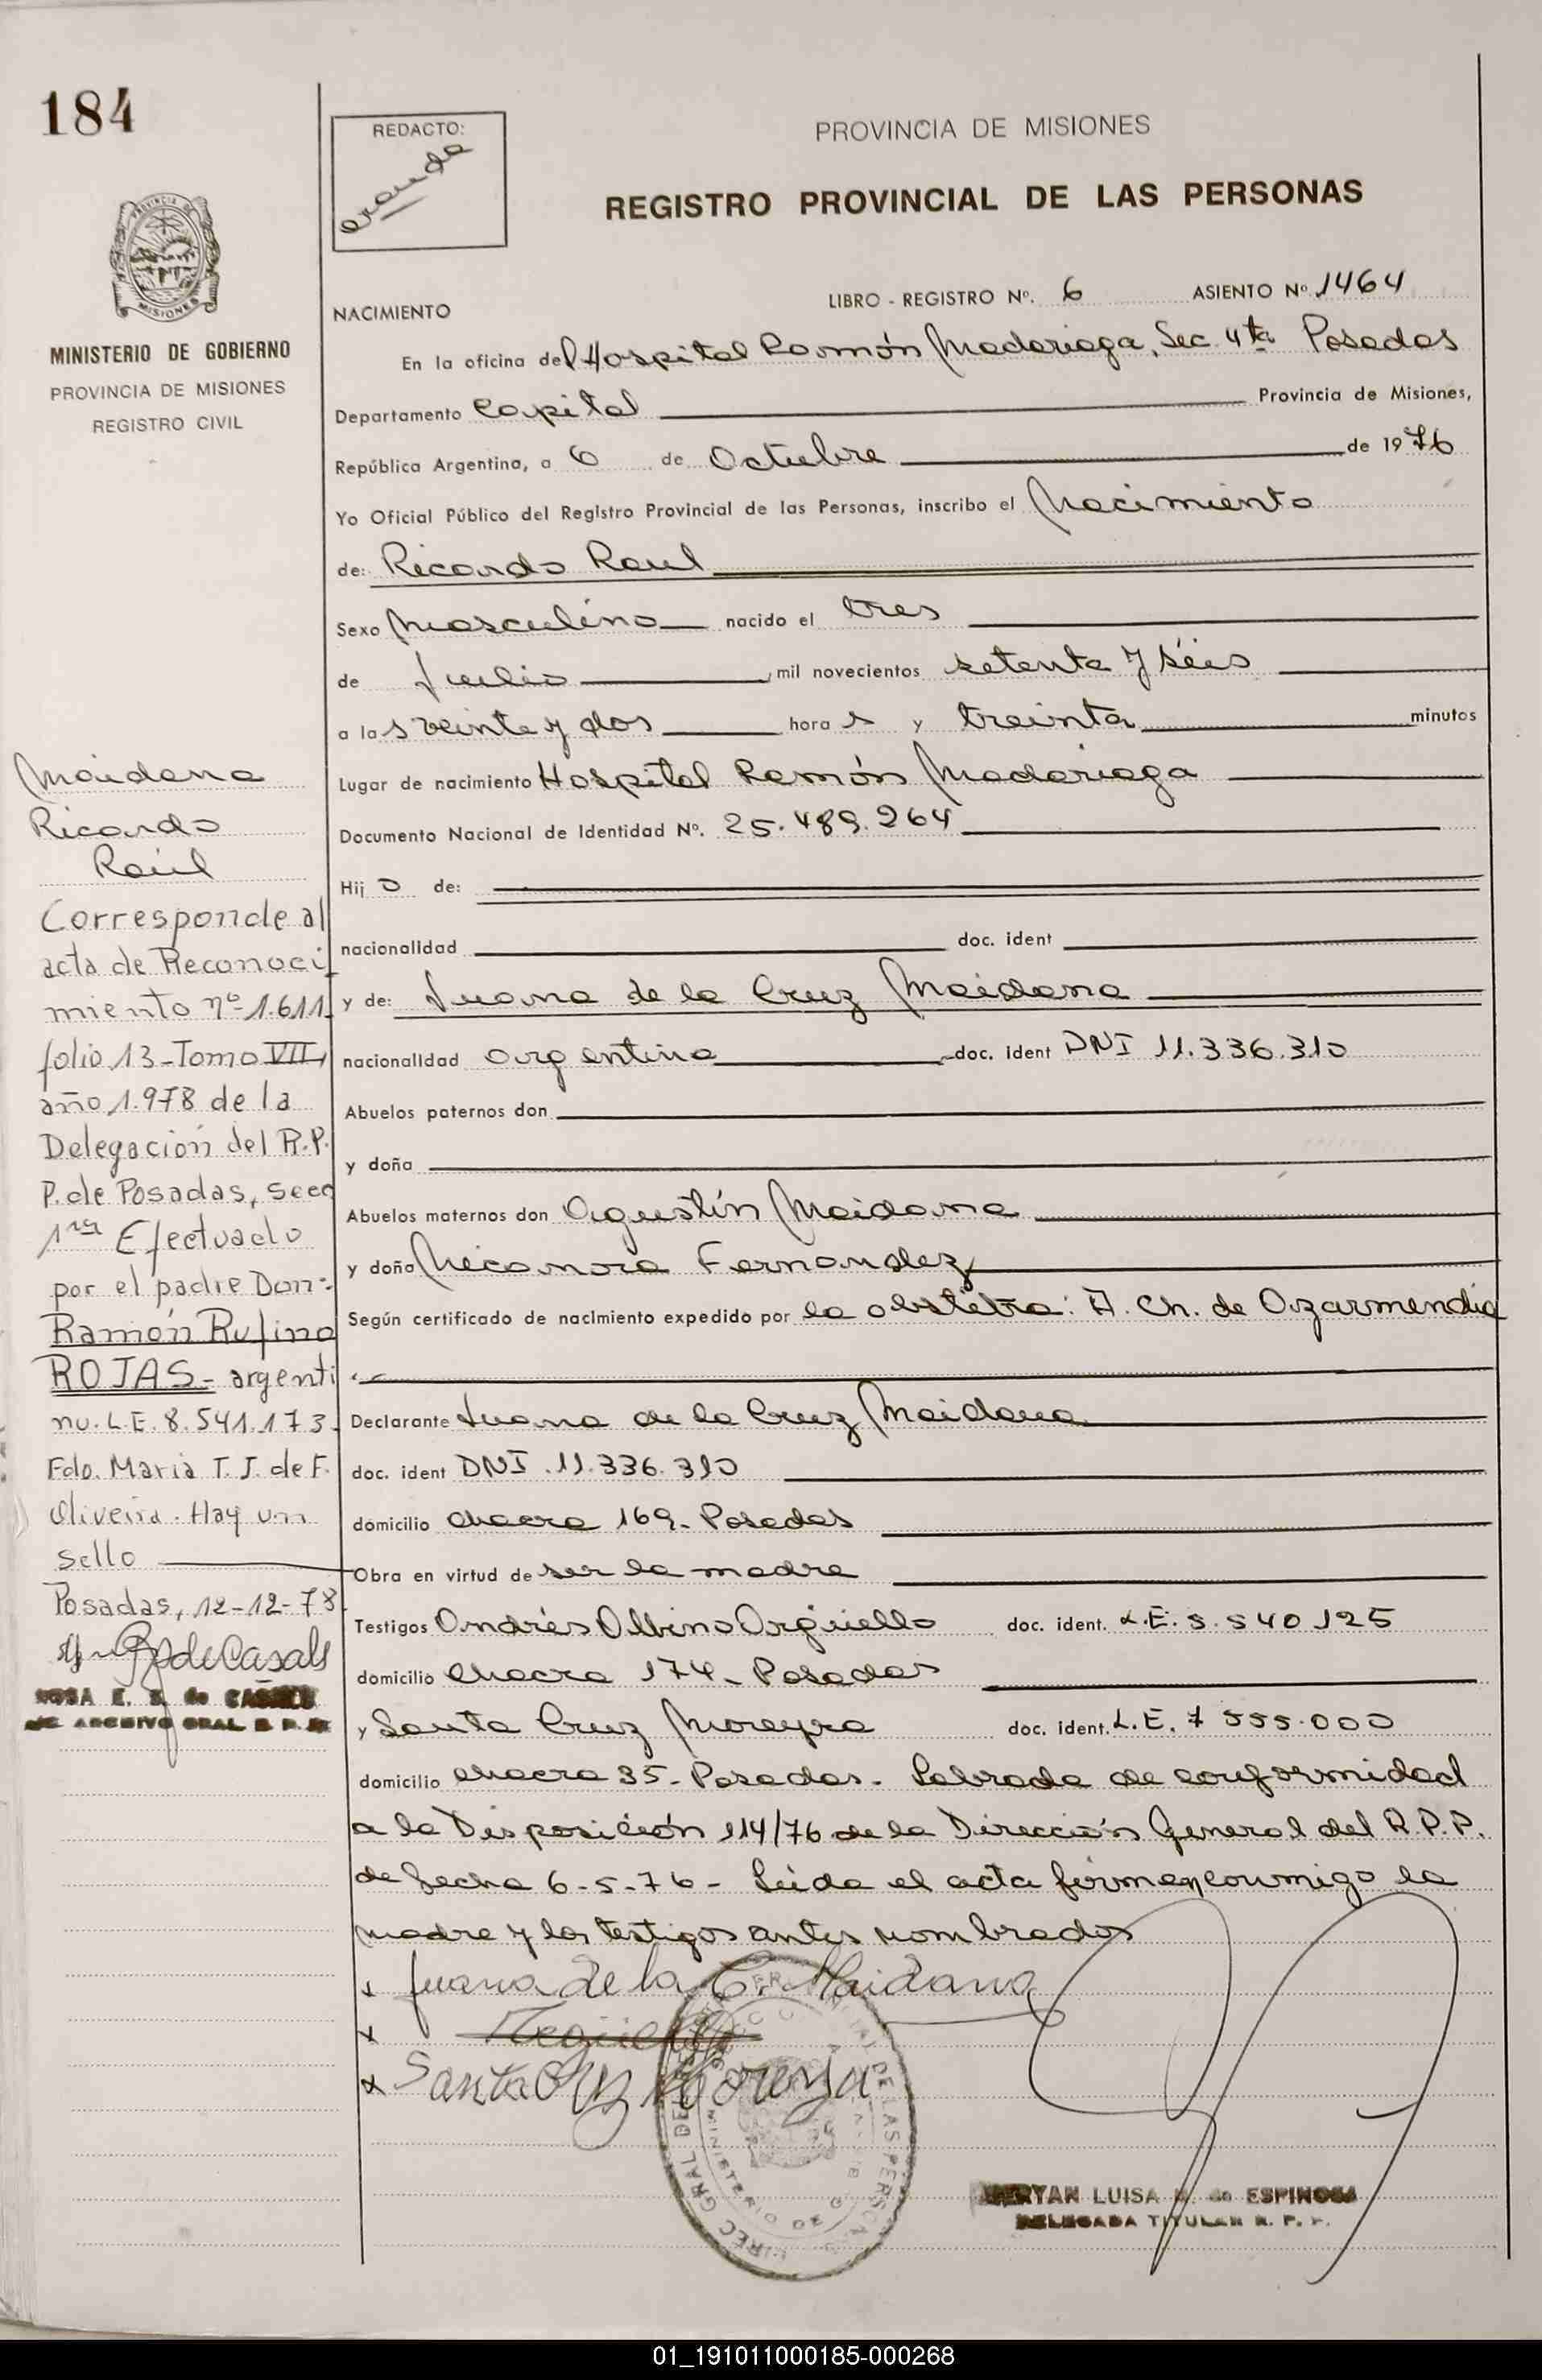 184
REDACTO:
PROVINCIA DE MISIONES
REGISTRO PROVINCIAL DE LAS PERSONAS
MISIONES
MINISTERIO DE GOBIERNO
PROVINCIA DE MISIONES
REGISTRO CIVIL
LIBRO - REGISTRO Nº. 6 ASIENTO Nº 1464
NACIMIENTO
En la oficina del Hospital Ramón Madariaga, Sec. 4ta Posadas
Departamento Capital Provincia de Misiones,
República Argentina, a 6 de Octubre de 1976
Yo Oficial Público del Registro Provincial de las Personas, inscribo el Nacimiento
de: Ricardo Raul
Sexo Masculino nacido el tres
de Julio mil novecientos setenta y séis
a las veinte y dos horas y treinta minutos
Lugar de nacimiento Hospital Ramón Madariaga
Documento Nacional de Identidad Nº. 25.489.264
Hijo de:
nacionalidad doc. ident
y de: Juana de la Cruz Maidana
nacionalidad argentina doc. ident DNI 11.336.310
Abuelos paternos don
y doña
Abuelos maternos don Agustín Maidana
y doña Nicanora Fernandez
Según certificado de nacimiento expedido por la obstétra: A. Ch. de Ozarmendia
Declarante Juana de la Cruz Maidana
doc. ident DNI .11.336.310
domicilio chacra 169- Posadas
Obra en virtud de ser la madre
Testigos Andrés Albino Argüello doc. ident. L.E. 5.540.125
domicilio chacra 174- Posadas
y Santa Cruz Moreyra doc. ident. L.E. 7 555.000
domicilio chacra 35- Posadas. Labrada de conformidad
a la Disposición 114/76 de la Dirección General del R.P.P.
de fecha 6-5-76- Leida el acta firman conmigo la
madre y los testigos antes nombrados
x Juana de la C. Maidana
x Argüello
x Santa Cruz Moreyra
MERYAN LUISA de ESPINOSA
DELEGADA TITULAR R. P. P.
Maidana
Ricardo
Raúl
Corresponde al
acta de Reconoci
miento nº 1.611
folio 13-Tomo VII,
año 1.978 de la
Delegación del R.P.
P. de Posadas, secc
1ra Efectuado
por el padre Don:
Ramón Rufino
ROJAS- argenti
no. L.E. 8.541.173.
Fdo. Maria T. J. de F.
Oliveira. Hay un
sello
Posadas, 12-12-78
de Casals
ROSA E. S. de CASALS
ARCHIVO GRAL R. P. P.
01_191011000185-000268